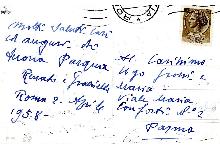 Molti Saluti Cari
ed auguri di
Buona Pasqua
Renato e Graziella
Roma 2 - Aprile
958 -
Al Carissimo
Ugo
Maria
Viale Maria
Parma